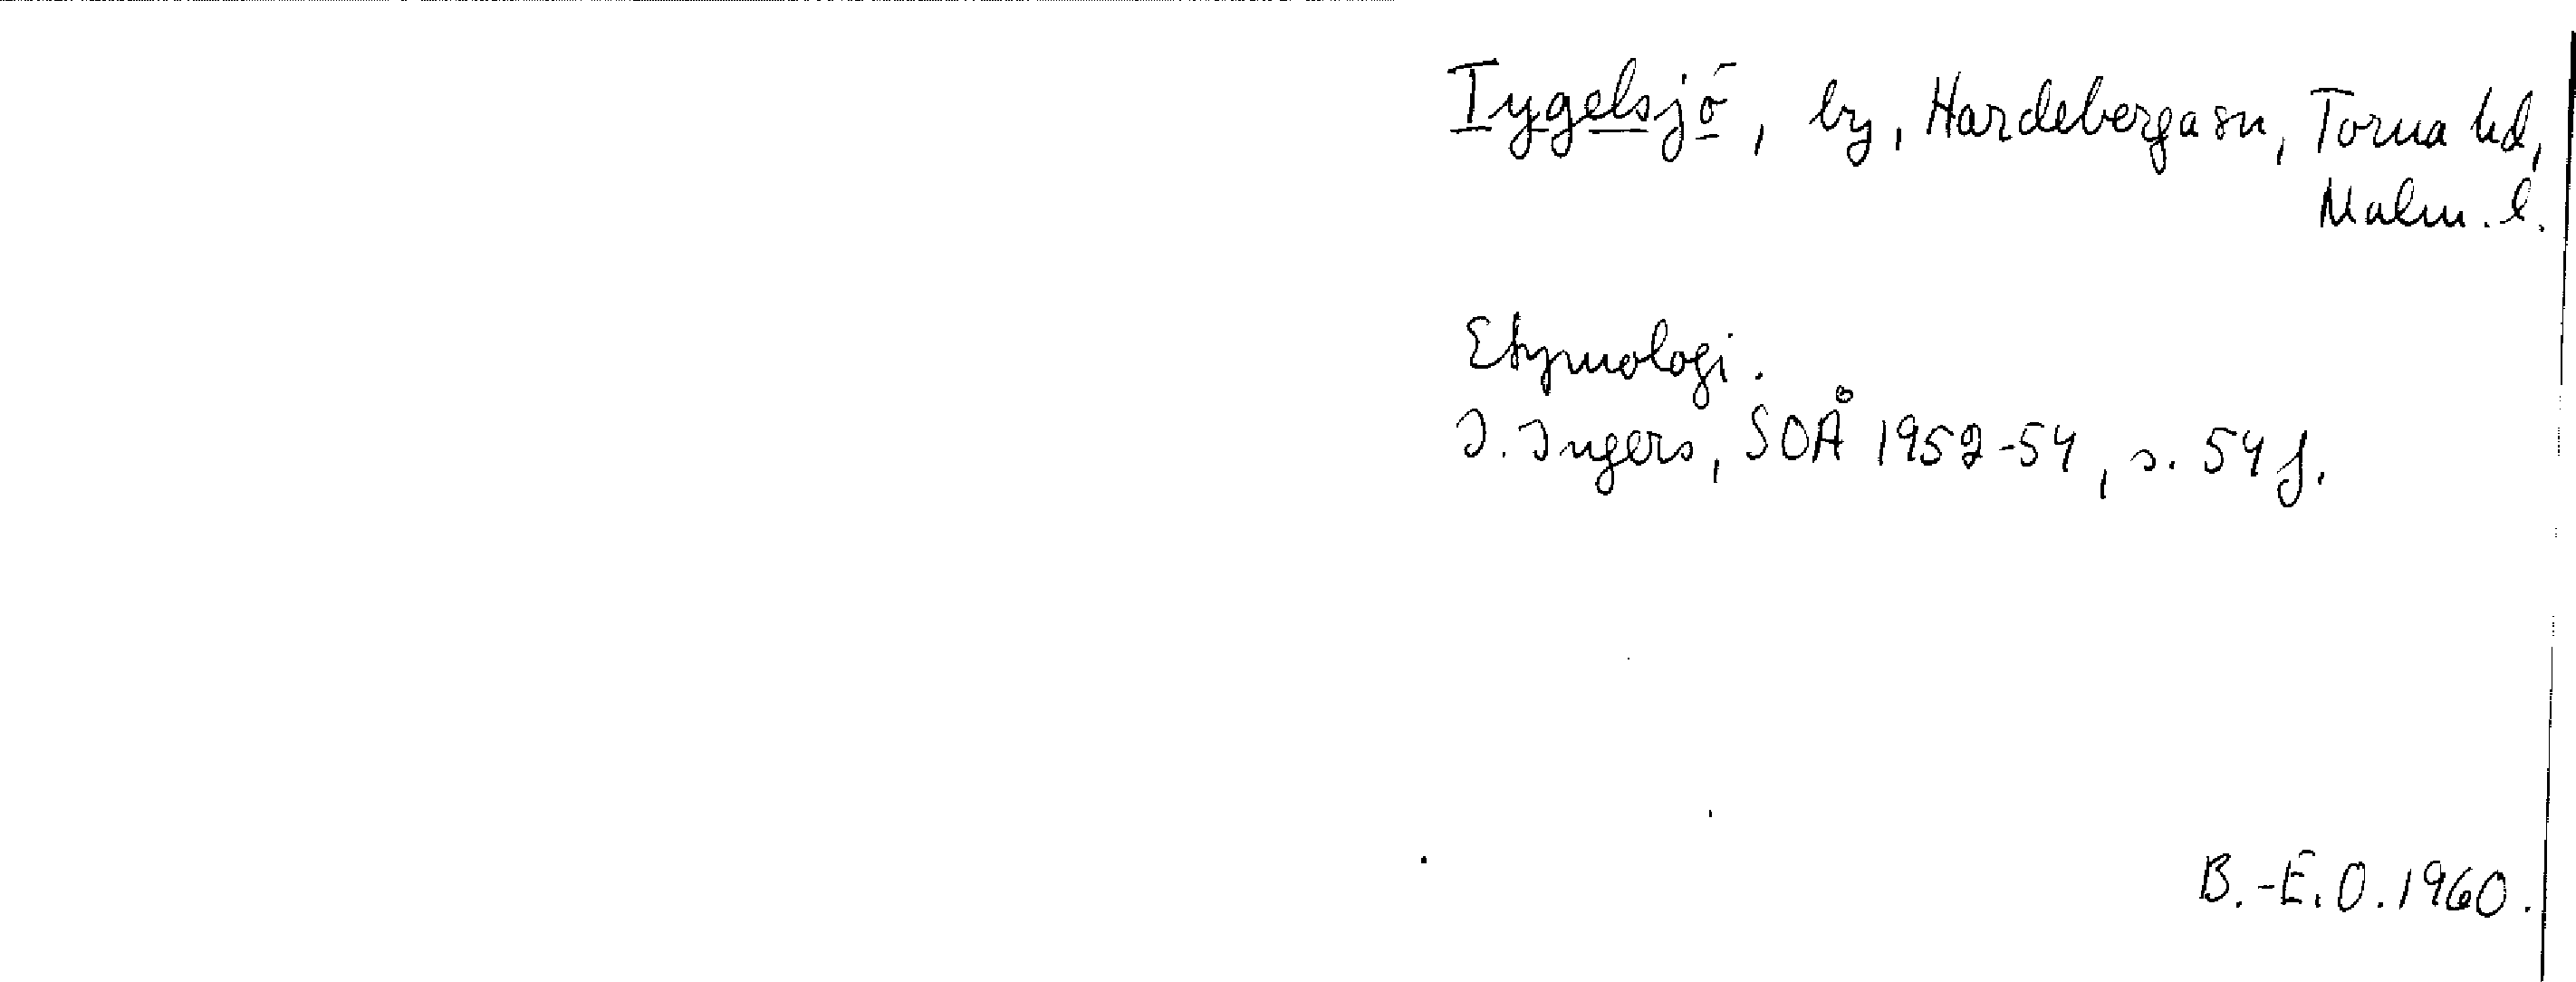 Tygelsjö, by, Hardeberga sn, Torna hd,
Malm. l.
Etymologi.
I. Ingers, SOÅ 1952-54, s. 54 f.
B.-E. O. 1960.